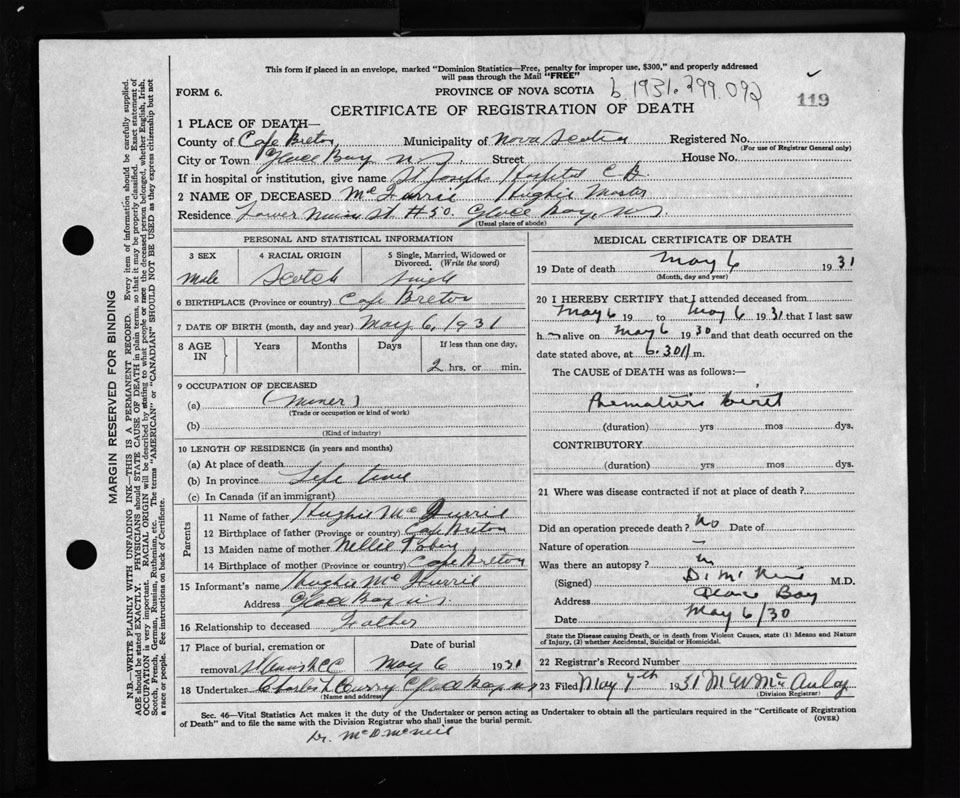 This form if placed in an envelope, marked "Dominion Statistics—Free, penalty for improper use, $300," and properly addressed
will pass through the Mail "FREE"
FORM 6.
PROVINCE OF NOVA SCOTIA
b. 1931. 399.092
119
CERTIFICATE OF REGISTRATION OF DEATH
1 PLACE OF DEATH—
County of Cape Breton Municipality of Nova Scotia Registered No.
(For use of Registrar General only)
City or Town Glace Bay N S Street House No.
If in hospital or institution, give name St Joseph Hospital C B.
2 NAME OF DECEASED Mc Hughie Master
Residence Lower St #50. Glace Bay, N S.
(Usual place of abode)
PERSONAL AND STATISTICAL INFORMATION
3 SEX
Male
4 RACIAL ORIGIN
Scotch
5 Single, Married, Widowed or
Divorced. (Write the word)
Single
6 BIRTHPLACE (Province or country) Cape Breton
7 DATE OF BIRTH (month, day and year) May 6, 1931
8 AGE
IN
Years
Months
Days
If less than one day,
2 hrs. or min.
9 OCCUPATION OF DECEASED
(a) (Miner)
(Trade or occupation or kind of work)
(b)
(Kind of industry)
10 LENGTH OF RESIDENCE (in years and months)
(a) At place of death
(b) In province Life time
(c) In Canada (if an immigrant)
Parents
11 Name of father Hughie Mc
12 Birthplace of father (Province or country) Cape Breton
13 Maiden name of mother Nellie
14 Birthplace of mother (Province or country) Cape Breton
15 Informant's name Hughie Mc
Address Glace Bay N S.
16 Relationship to deceased Father
17 Place of burial, cremation or
removal
Date of burial
May 6 1931
18 Undertaker Charles L Curry Glace Bay N S
(Name and address)
MEDICAL CERTIFICATE OF DEATH
19 Date of death May 6 1931
(Month, day and year)
20 I HEREBY CERTIFY that I attended deceased from
May 6 19 to May 6 1931 that I last saw
h alive on May 6 1930 and that death occurred on
date stated above, at 6.30 m.
The CAUSE of DEATH was as follows:—
Premature Birth
(duration) yrs mos dys.
CONTRIBUTORY
(duration) yrs mos dys.
21 Where was disease contracted if not at place of death?
Did an operation precede death? No Date of
Nature of operation —
Was there an autopsy?
(Signed) D. Mc Neil M.D.
Address Glace Bay
Date May 6/30
State the Disease causing Death, or in death from Violent Causes, state (1) Means and Nature
of Injury, (2) whether Accidental, Suicidal or Homicidal.
22 Registrar's Record Number
23 Filed May 7th 1931 M W McAulay
(Division Registrar)
Sec. 46—Vital Statistics Act makes it the duty of the Undertaker or person acting as Undertaker to obtain all the particulars required in the "Certificate of Registration
of Death" and to file the same with the Division Registrar who shall issue the burial permit.
(OVER)
Dr. McD McNeil
MARGIN RESERVED FOR BINDING
N.B.—WRITE PLAINLY WITH UNFADING INK—THIS IS A PERMANENT RECORD. Every item of information should be carefully supplied.
AGE should be stated EXACTLY. PHYSICIANS should STATE CAUSE OF DEATH in plain terms, so that it may be properly classified. Exact statement of
OCCUPATION is very important. RACIAL ORIGIN will be described by stating to what people or race the deceased person belonged, whether English, Irish,
Scotch, French, German, Russian, Ruthenian, etc. The terms "AMERICAN" or "CANADIAN" SHOULD NOT BE USED as they express citizenship but not
a race or people. See instructions on back of Certificate.